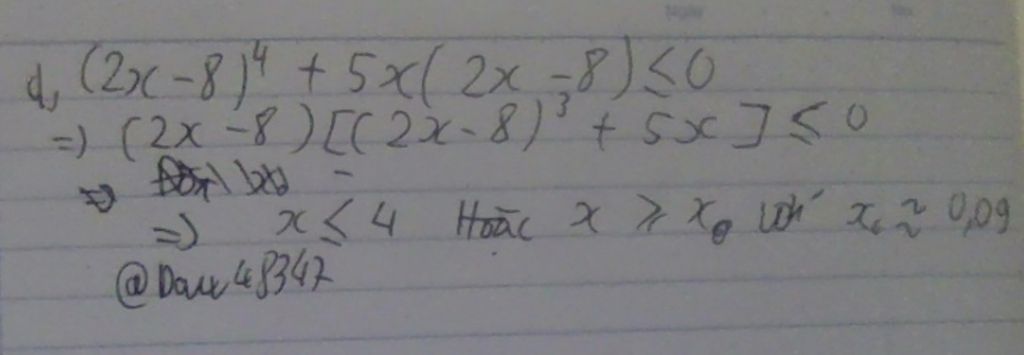 d, (2x - 8)⁴ + 5x(2x - 8) ≤ 0
=> (2x - 8)[(2x - 8)³ + 5x] ≤ 0
=>
=> x ≤ 4 Hoặc x ≥ x₀ với x₀ ≈ 0,09